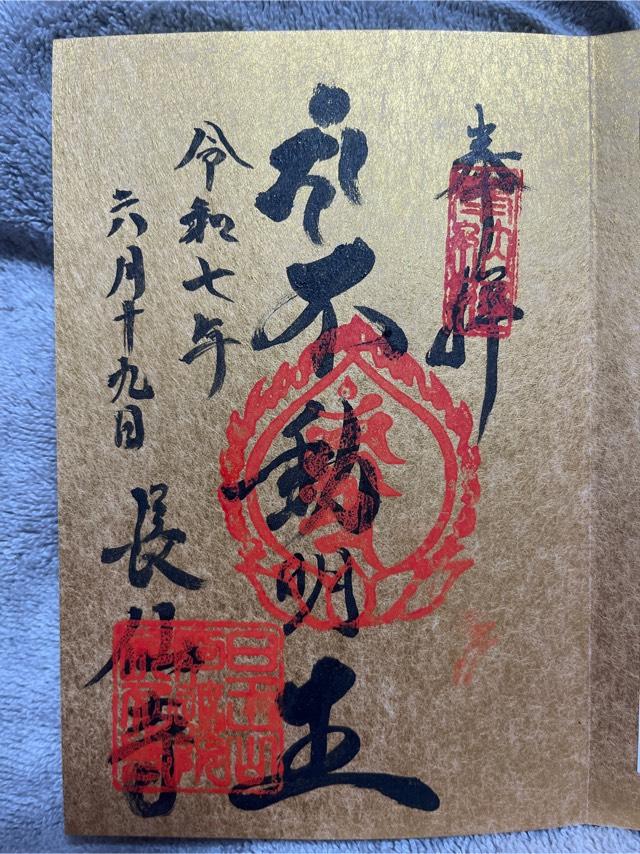 奉拝
不動明王
令和七年
六月十九日
長仙寺